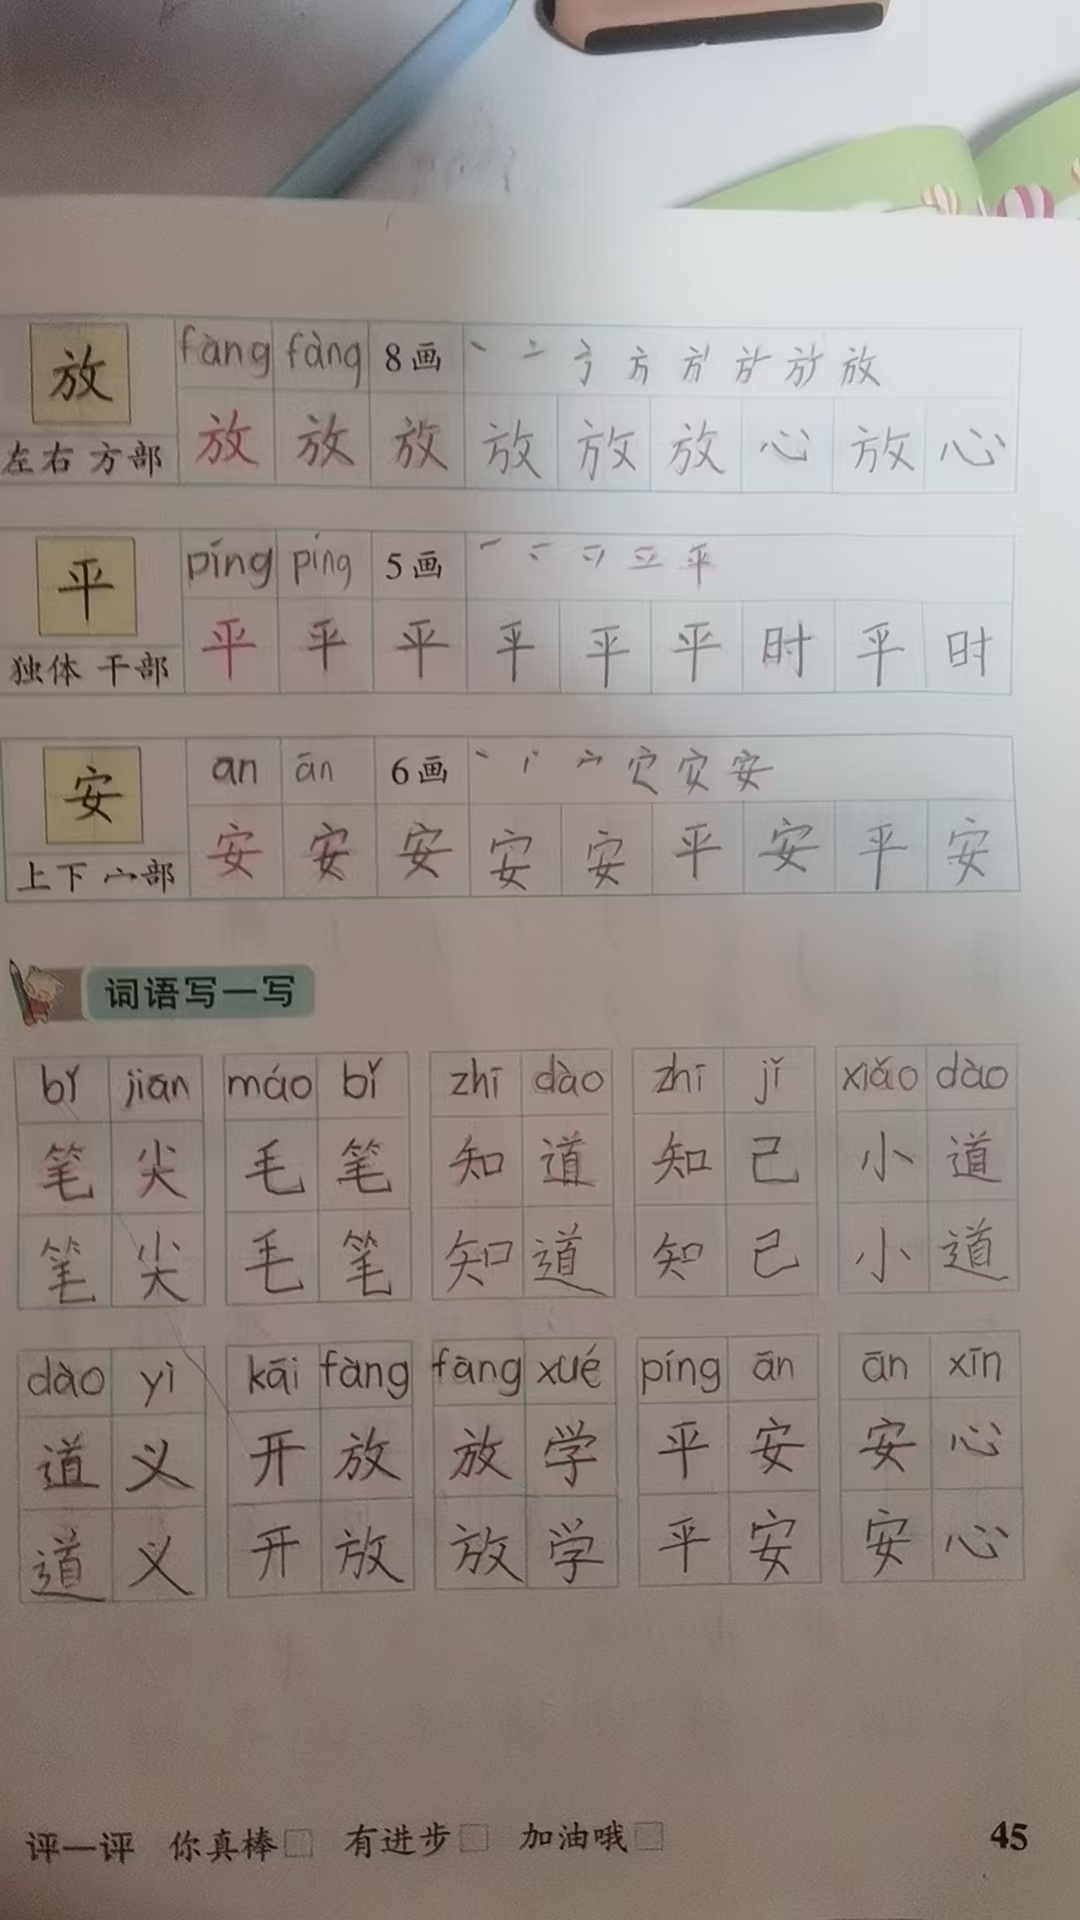 放 fàng fàng 8画 丶 亠 亍 方 放
左右 方部 放 放 放 放 放 放 心 放 心
平 píng píng 5画 一 平
独体 干部 平 平 平 平 平 平 时 平 时
安 an ān 6画 丶 宀 安
上下 宀部 安 安 安 安 安 平 安 平 安
词语写一写
bǐ jiān máo bǐ zhī dào zhī jǐ xiǎo dào
笔 尖 毛 笔 知 道 知 己 小 道
笔 尖 毛 笔 知 道 知 己 小 道
dào yì kāi fàng fàng xué píng ān ān xīn
道 义 开 放 放 学 平 安 安 心
道 义 开 放 放 学 平 安 安 心
评一评 你真棒□ 有进步□ 加油哦□ 45